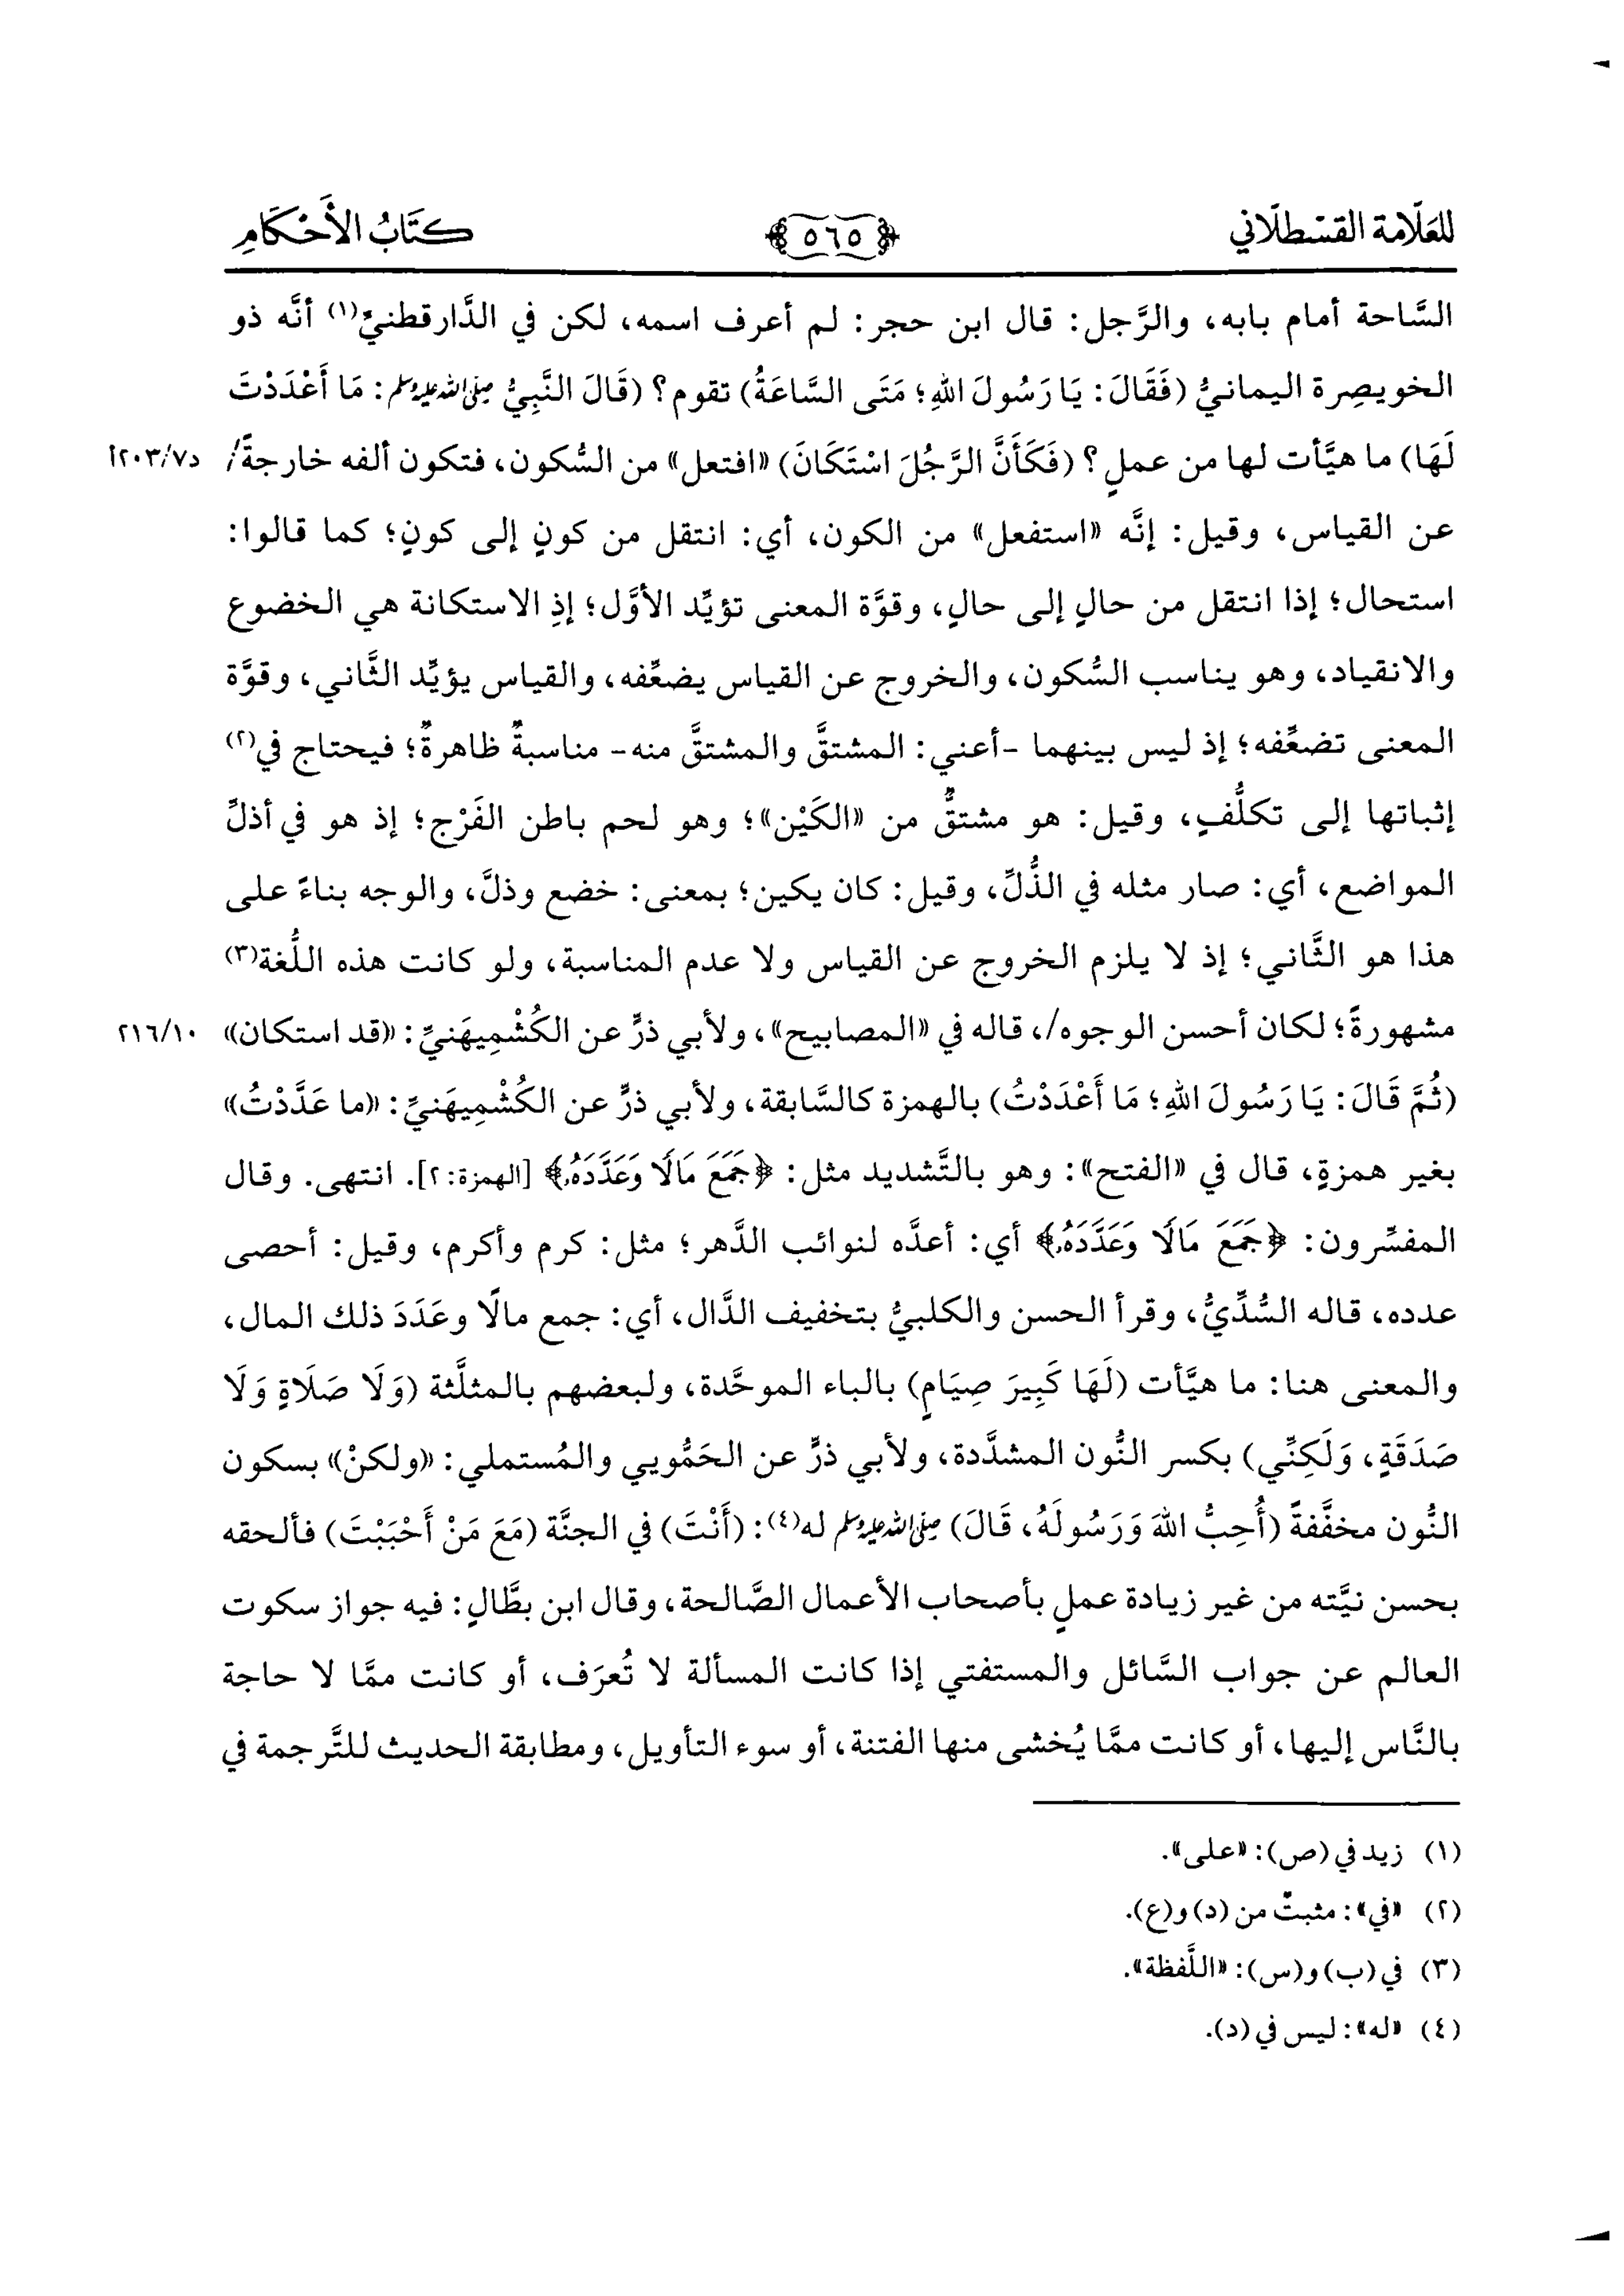 للعلامة القسطلاني ٥٦٥ كتاب الأحكام
السَّاحة أمام بابه، والرَّجل: قال ابن حجر: لم أعرف اسمه، لكن في الدَّارقطنيِّ(١) أنَّه ذو
الخويصِرة اليمانيُّ (فَقَالَ: يَا رَسُولَ اللهِ؛ مَتَى السَّاعَةُ) تقوم؟ (قَالَ النَّبِيُّ صلى الله عليه وسلم: مَا أَعْدَدْتَ
لَهَا) ما هيَّأت لها من عملٍ؟ (فَكَأَنَّ الرَّجُلَ اسْتَكَانَ) «افتعل» من السُّكون، فتكون ألفه خارجةً/ د٢٠٣/٧أ
عن القياس، وقيل: إنَّه «استفعل» من الكون، أي: انتقل من كونٍ إلى كونٍ؛ كما قالوا:
استحال؛ إذا انتقل من حالٍ إلى حالٍ، وقوَّة المعنى تؤيِّد الأوَّل؛ إذِ الاستكانة هي الخضوع
والانقياد، وهو يناسب السُّكون، والخروج عن القياس يضعِّفه، والقياس يؤيِّد الثَّاني، وقوَّة
المعنى تضعِّفه؛ إذ ليس بينهما -أعني: المشتقَّ والمشتقَّ منه- مناسبةٌ ظاهرةٌ؛ فيحتاج في(٢)
إثباتها إلى تكلُّفٍ، وقيل: هو مشتقٌّ من «الكَيْن»؛ وهو لحم باطن الفَرْج؛ إذ هو في أذلِّ
المواضع، أي: صار مثله في الذُّلِّ، وقيل: كان يكين؛ بمعنى: خضع وذلَّ، والوجه بناءً على
هذا هو الثَّاني؛ إذ لا يلزم الخروج عن القياس ولا عدم المناسبة، ولو كانت هذه اللُّغة(٣)
مشهورةً؛ لكان أحسن الوجوه/، قاله في «المصابيح»، ولأبي ذرٍّ عن الكُشْمِيهَنيِّ: «قد استكان» ٢١٦/١٠
(ثُمَّ قَالَ: يَا رَسُولَ اللهِ؛ مَا أَعْدَدْتُ) بالهمزة كالسَّابقة، ولأبي ذرٍّ عن الكُشْمِيهَنيِّ: «ما عَدَّدْتُ»
بغير همزةٍ، قال في «الفتح»: وهو بالتَّشديد مثل: ﴿جَمَعَ مَالًا وَعَدَّدَهُ﴾ [الهمزة: ٢]. انتهى. وقال
المفسِّرون: ﴿جَمَعَ مَالًا وَعَدَّدَهُ﴾ أي: أعدَّه لنوائب الدَّهر؛ مثل: كرم وأكرم، وقيل: أحصى
عدده، قاله السُّدِّيُّ، وقرأ الحسن والكلبيُّ بتخفيف الدَّال، أي: جمع مالًا وعَدَدَ ذلك المال،
والمعنى هنا: ما هيَّأت (لَهَا كَبِيرَ صِيَامٍ) بالباء الموحَّدة، ولبعضهم بالمثلَّثة (وَلَا صَلَاةٍ وَلَا
صَدَقَةٍ، وَلَكِنِّي) بكسر النُّون المشدَّدة، ولأبي ذرٍّ عن الحَمُّويي والمُستملي: «ولكنْ» بسكون
النُّون مخفَّفةً (أُحِبُّ اللهَ وَرَسُولَهُ، قَالَ) صلى الله عليه وسلم له(٤): (أَنْتَ) في الجنَّة (مَعَ مَنْ أَحْبَبْتَ) فألحقه
بحسن نيَّته من غير زيادة عملٍ بأصحاب الأعمال الصَّالحة، وقال ابن بطَّالٍ: فيه جواز سكوت
العالم عن جواب السَّائل والمستفتي إذا كانت المسألة لا تُعرَف، أو كانت ممَّا لا حاجة
بالنَّاس إليها، أو كانت ممَّا يُخشى منها الفتنة، أو سوء التأويل، ومطابقة الحديث للتَّرجمة في
(١) زيد في (ص): «على».
(٢) «في»: مثبتٌ من (د) و(ع).
(٣) في (ب) و(س): «اللَّفظة».
(٤) «له»: ليس في (د).